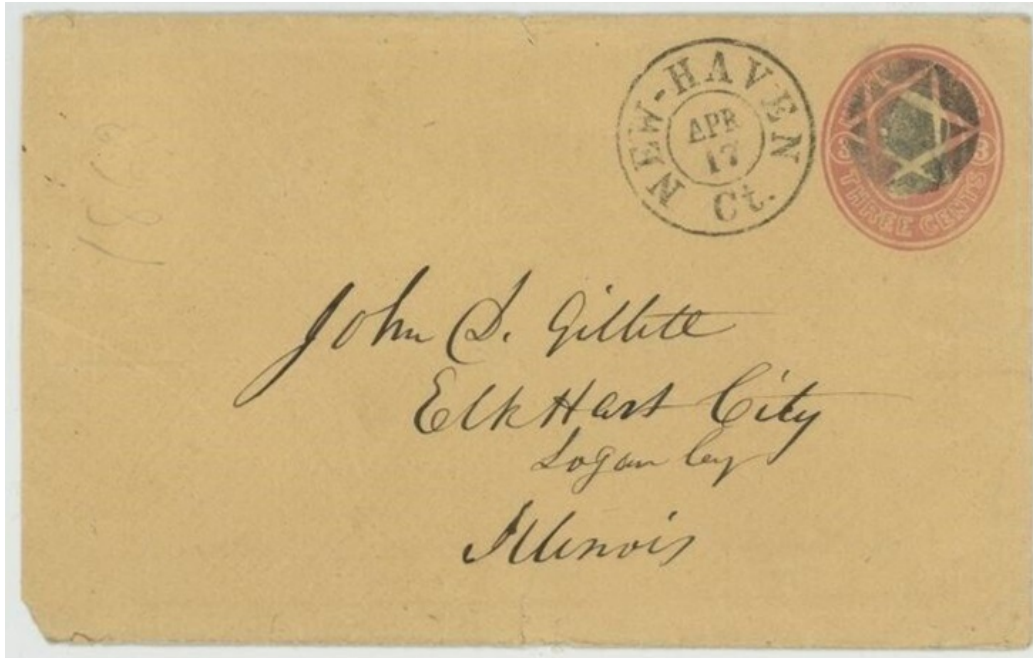 NEW-HAVEN
APR
17
Ct.
3 3
THREE CENTS
John D. Gillett
ElkHart City
Logan Coy
Illinois